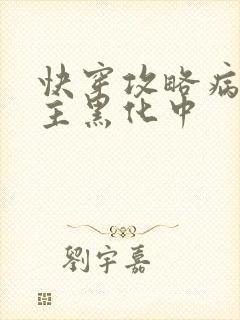 快穿攻略病
主黑化中
劉宇嘉